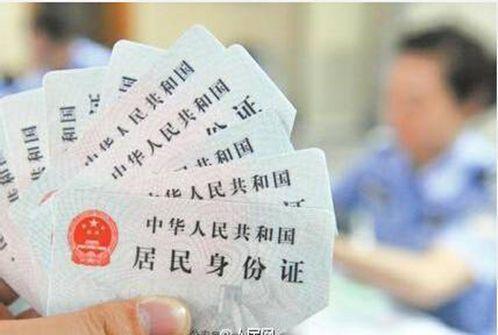 中华人民共和国
中华人民共和国
份证
中华人民共和国
证
中华人民共和国
证
中华人民共和国
居民身份证
@人民网